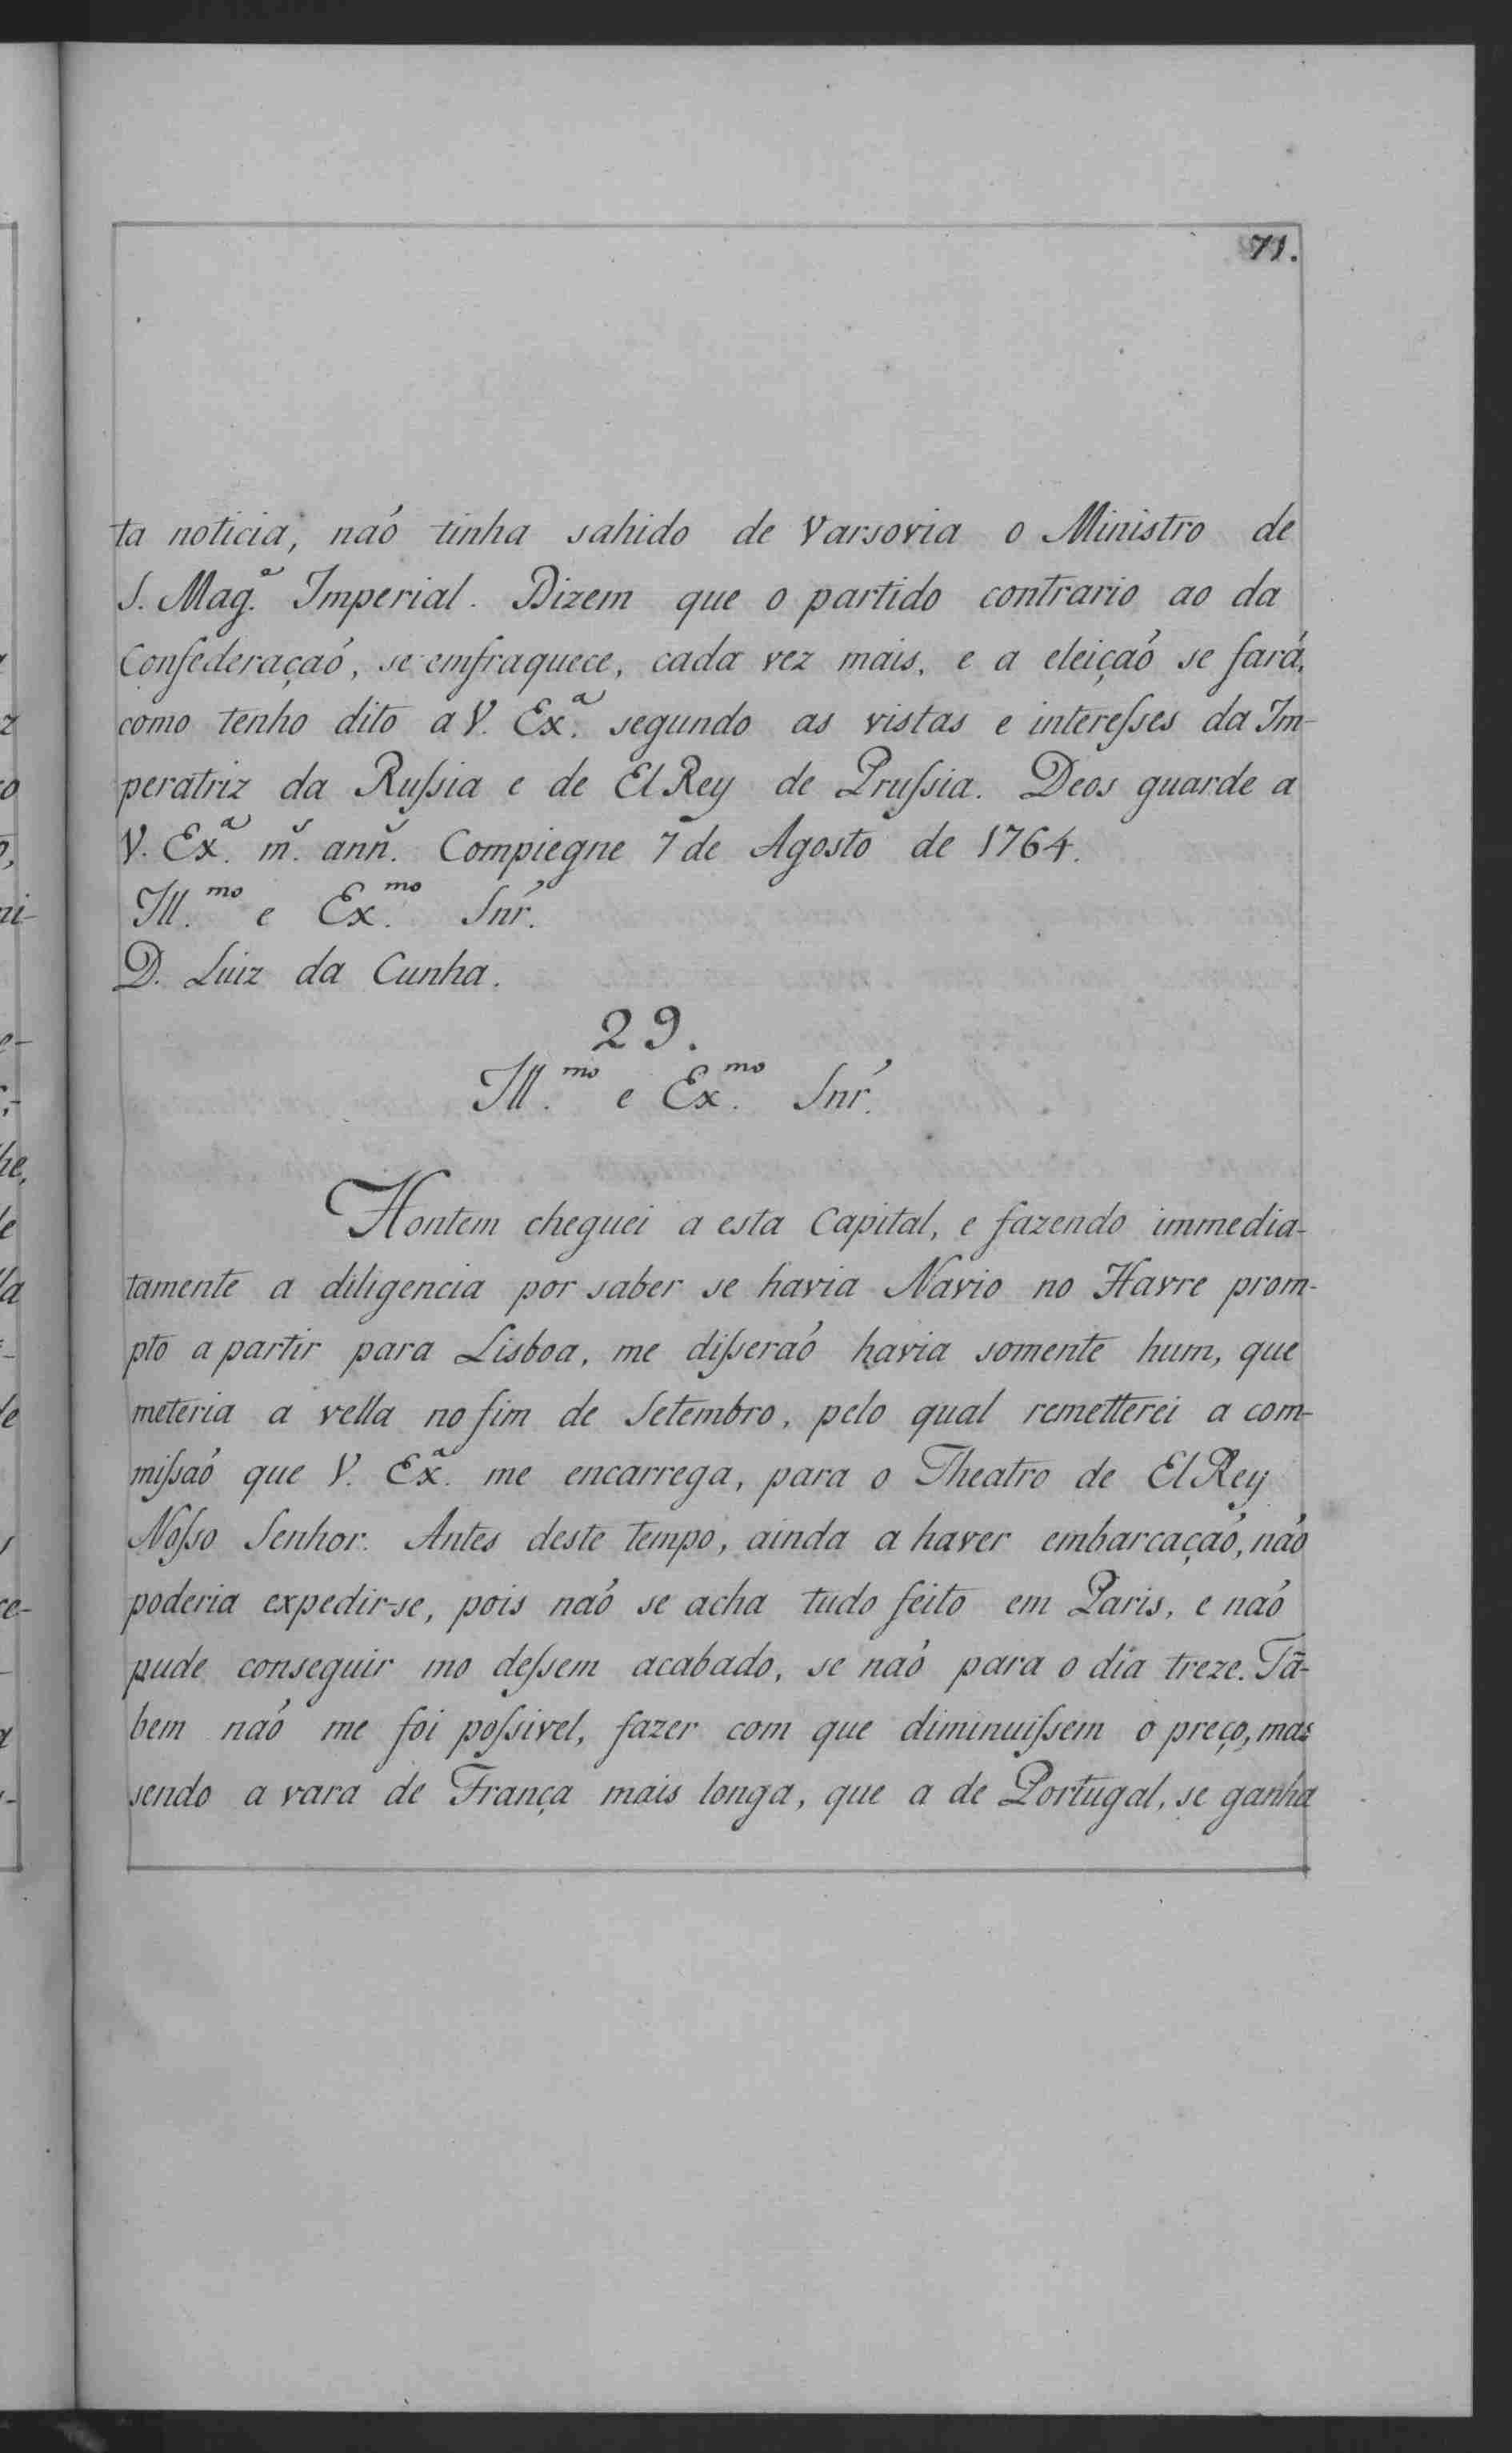 71.
ta noticia, naõ tinha sahido de Varsovia o Ministro de
S. Mag.ᵉ Imperial. Dizem que o partido contrario ao da
Confederaçaõ, se emfraquece, cada vez mais, e a eleiçaõ se fará,
como tenho dito a V. Ex.ª segundo as vistas e intereſses da Im-
peratriz da Ruſsia e de El Rey de Pruſsia. Deos guarde a
V. Ex.ª m.ˢ ann.ˢ Compiegne 7 de Agosto de 1764.
Ill.ᵐᵒ e Ex.ᵐᵒ Snr.
D. Luiz da Cunha.
29.
Ill.ᵐᵒ e Ex.ᵐᵒ Snr.
Hontem cheguei a esta Capital, e fazendo immedia-
tamente a diligencia por saber se havia Navio no Havre prom-
pto a partir para Lisboa, me diſseraõ havia somente hum, que
meteria a vella no fim de Setembro, pelo qual remetterei a com-
miſsaõ que V. Ex.ª me encarrega, para o Theatro de El Rey
Noſso Senhor. Antes deste tempo, ainda a haver embarcaçaõ, naõ
poderia expedir-se, pois naõ se acha tudo feito em Paris, e naõ
pude conseguir mo deſsem acabado, se naõ para o dia treze. Tã-
bem naõ me foi poſsivel, fazer com que diminuiſsem o preço, mas
sendo a vara de França mais longa, que a de Portugal, se ganha